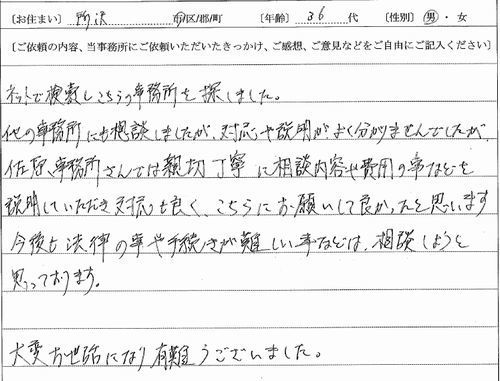 【お住まい】 所沢 市/区/郡/町 【年齢】 36 代 【性別】 男・女
【ご依頼の内容、当事務所にご依頼いただいたきっかけ、ご感想、ご意見などをご自由にご記入ください】
ネットで検索しこちらの事務所を探しました。
他の事務所にも相談しましたが、対応や説明がよく分かりませんでしたが、
佐原事務所さんでは親切丁寧に相談内容や費用の事などを
説明していただき対応も良く、こちらにお願いして良かったと思います
今後も法律の事や手続きが難しい事などは、相談しようと
思っております。
大変お世話になり有難うございました。